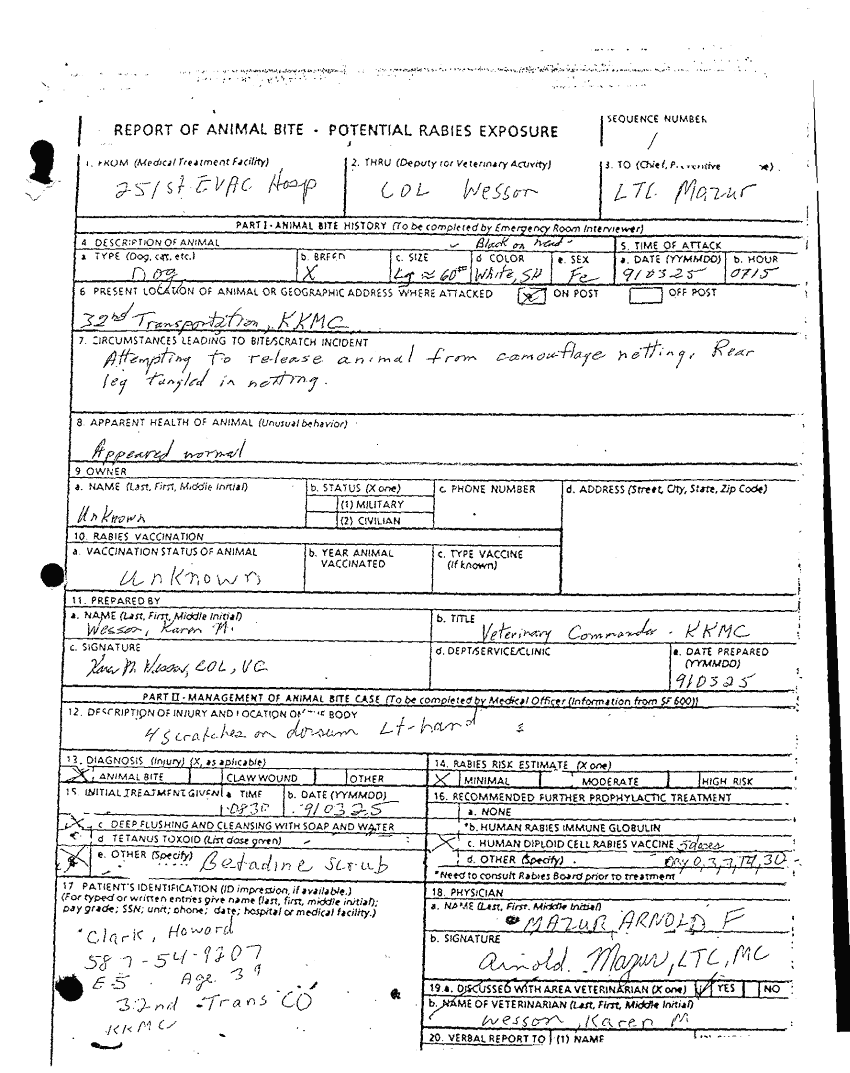 SEQUENCE NUMBER
REPORT OF ANIMAL BITE - POTENTIAL RABIES EXPOSURE
1
1. FROM (Medical Treatment Facility)
251st EVAC Hosp
2. THRU (Deputy for Veterinary Activity)
COL Wesson
3. TO (Chief, Preventive
LTC Mazur
PART I - ANIMAL BITE HISTORY (To be completed by Emergency Room Interviewer)
4 DESCRIPTION OF ANIMAL
Black on head
5. TIME OF ATTACK
a TYPE (Dog, cat, etc.)
Dog
b. BREED
X
c. SIZE
Lg ≈ 60#
d COLOR
White, SH
e. SEX
Fe
a. DATE (YYMMDD)
910325
b. HOUR
0715
6 PRESENT LOCATION OF ANIMAL OR GEOGRAPHIC ADDRESS WHERE ATTACKED
X ON POST
OFF POST
32nd Transportation, KKMC
7. CIRCUMSTANCES LEADING TO BITE/SCRATCH INCIDENT
Attempting to release animal from camouflage netting. Rear
leg tangled in netting.
8. APPARENT HEALTH OF ANIMAL (Unusual behavior)
Appeared normal
9 OWNER
a. NAME (Last, First, Middle Initial)
Unknown
b. STATUS (X one)
(1) MILITARY
(2) CIVILIAN
c. PHONE NUMBER
d. ADDRESS (Street, City, State, Zip Code)
10. RABIES VACCINATION
a. VACCINATION STATUS OF ANIMAL
Unknown
b. YEAR ANIMAL
VACCINATED
c. TYPE VACCINE
(If known)
11. PREPARED BY
a. NAME (Last, First, Middle Initial)
Wesson, Karen M.
b. TITLE
Veterinary Commander - KKMC
c. SIGNATURE
Karen M. Wesson, COL, VC
d. DEPT/SERVICE/CLINIC
e. DATE PREPARED
(YYMMDD)
910325
PART II - MANAGEMENT OF ANIMAL BITE CASE (To be completed by Medical Officer (Information from SF 600))
12. DESCRIPTION OF INJURY AND LOCATION ON THE BODY
4 scratches on dorsum Lt-hand
13. DIAGNOSIS (Injury) (X, as aplicable)
X ANIMAL BITE
CLAW WOUND
OTHER
14. RABIES RISK ESTIMATE (X one)
X MINIMAL
MODERATE
HIGH RISK
15 INITIAL TREATMENT GIVEN
a TIME
0830
b. DATE (YYMMDD)
910325
X c DEEP FLUSHING AND CLEANSING WITH SOAP AND WATER
d TETANUS TOXOID (List dose given)
X e. OTHER (Specify) Betadine Scrub
16. RECOMMENDED FURTHER PROPHYLACTIC TREATMENT
a. NONE
*b. HUMAN RABIES IMMUNE GLOBULIN
X c. HUMAN DIPLOID CELL RABIES VACCINE 5 doses
d. OTHER (Specify) Day 0, 3, 7, 14, 30
*Need to consult Rabies Board prior to treatment
17 PATIENT'S IDENTIFICATION (ID impression, if available.)
(For typed or written entries give name (last, first, middle initial);
pay grade; SSN; unit; phone; date; hospital or medical facility.)
Clark, Howard
587-54-9207
E5 Age 39
32nd Trans CO
KKMC
18. PHYSICIAN
a. NAME (Last, First, Middle Initial)
MAZUR, ARNOLD F
b. SIGNATURE
Arnold Mazur, LTC, MC
19.a. DISCUSSED WITH AREA VETERINARIAN (X one)
YES
NO
b. NAME OF VETERINARIAN (Last, First, Middle Initial)
Wesson, Karen M
20. VERBAL REPORT TO
(1) NAME